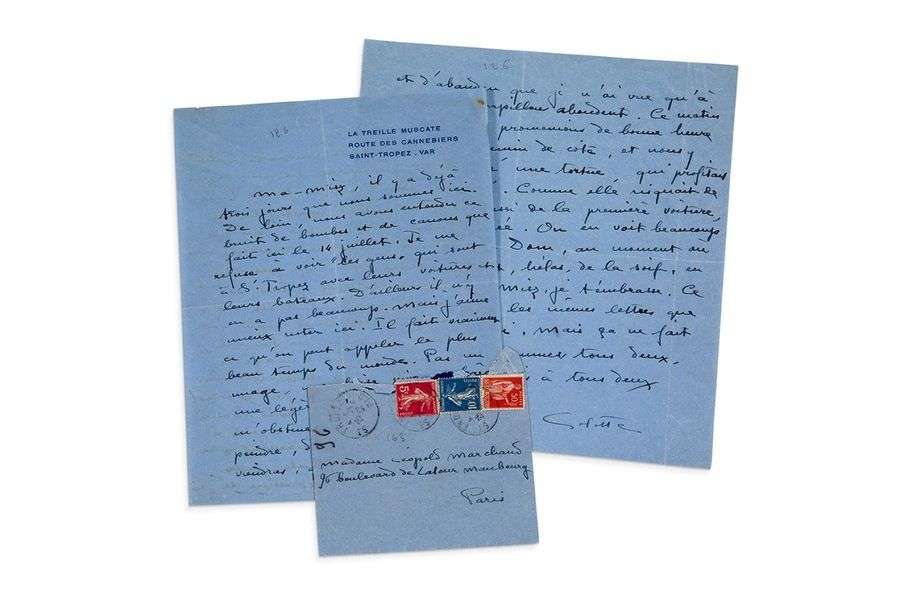 126
LA TREILLE MUSCATE
ROUTE DES CANNEBIERS
SAINT-TROPEZ . VAR
ma-miez, il y a déjà
trois jours que nous sommes ici.
De loin, nous avons entendu ce
bruit de bombes et de canons que
fait ici le 14 juillet. Je me
refuse à voir "les gens" qui sont
à St Tropez avec leurs voitures et
leurs bateaux. D'ailleurs il n'y
en a pas beaucoup. Mais j'aime
mieux rester ici. Il fait vraiment
ce qu'on peut appeler le plus
beau temps du monde. Pas un
nuage,
une
m'obstine
peindre,
viendras,
126
et d'abandon que je n'ai vue qu'à
abondent. Ce matin
promenions de bonne heure
de côte, et nous
une tortue, qui profitait
Comme elle risquait de
de la première voiture,
On en voit beaucoup
Dom, au moment où
hélas, de la soif, en
Miez, je t'embrasse. Ce
les mêmes lettres que
mais ça ne fait
tous deux.
à tous deux
Colette
5
10
50
Madame Léopold Marchand
96 boulevard de Latour Maubourg
Paris